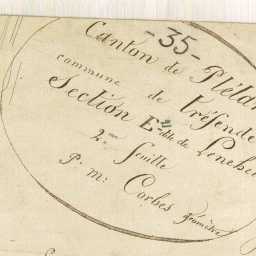 -35-
Canton de Pléla
commune de Tréfende
Section E dite de Penche
2me feuille
P. M: Corbes géomètre